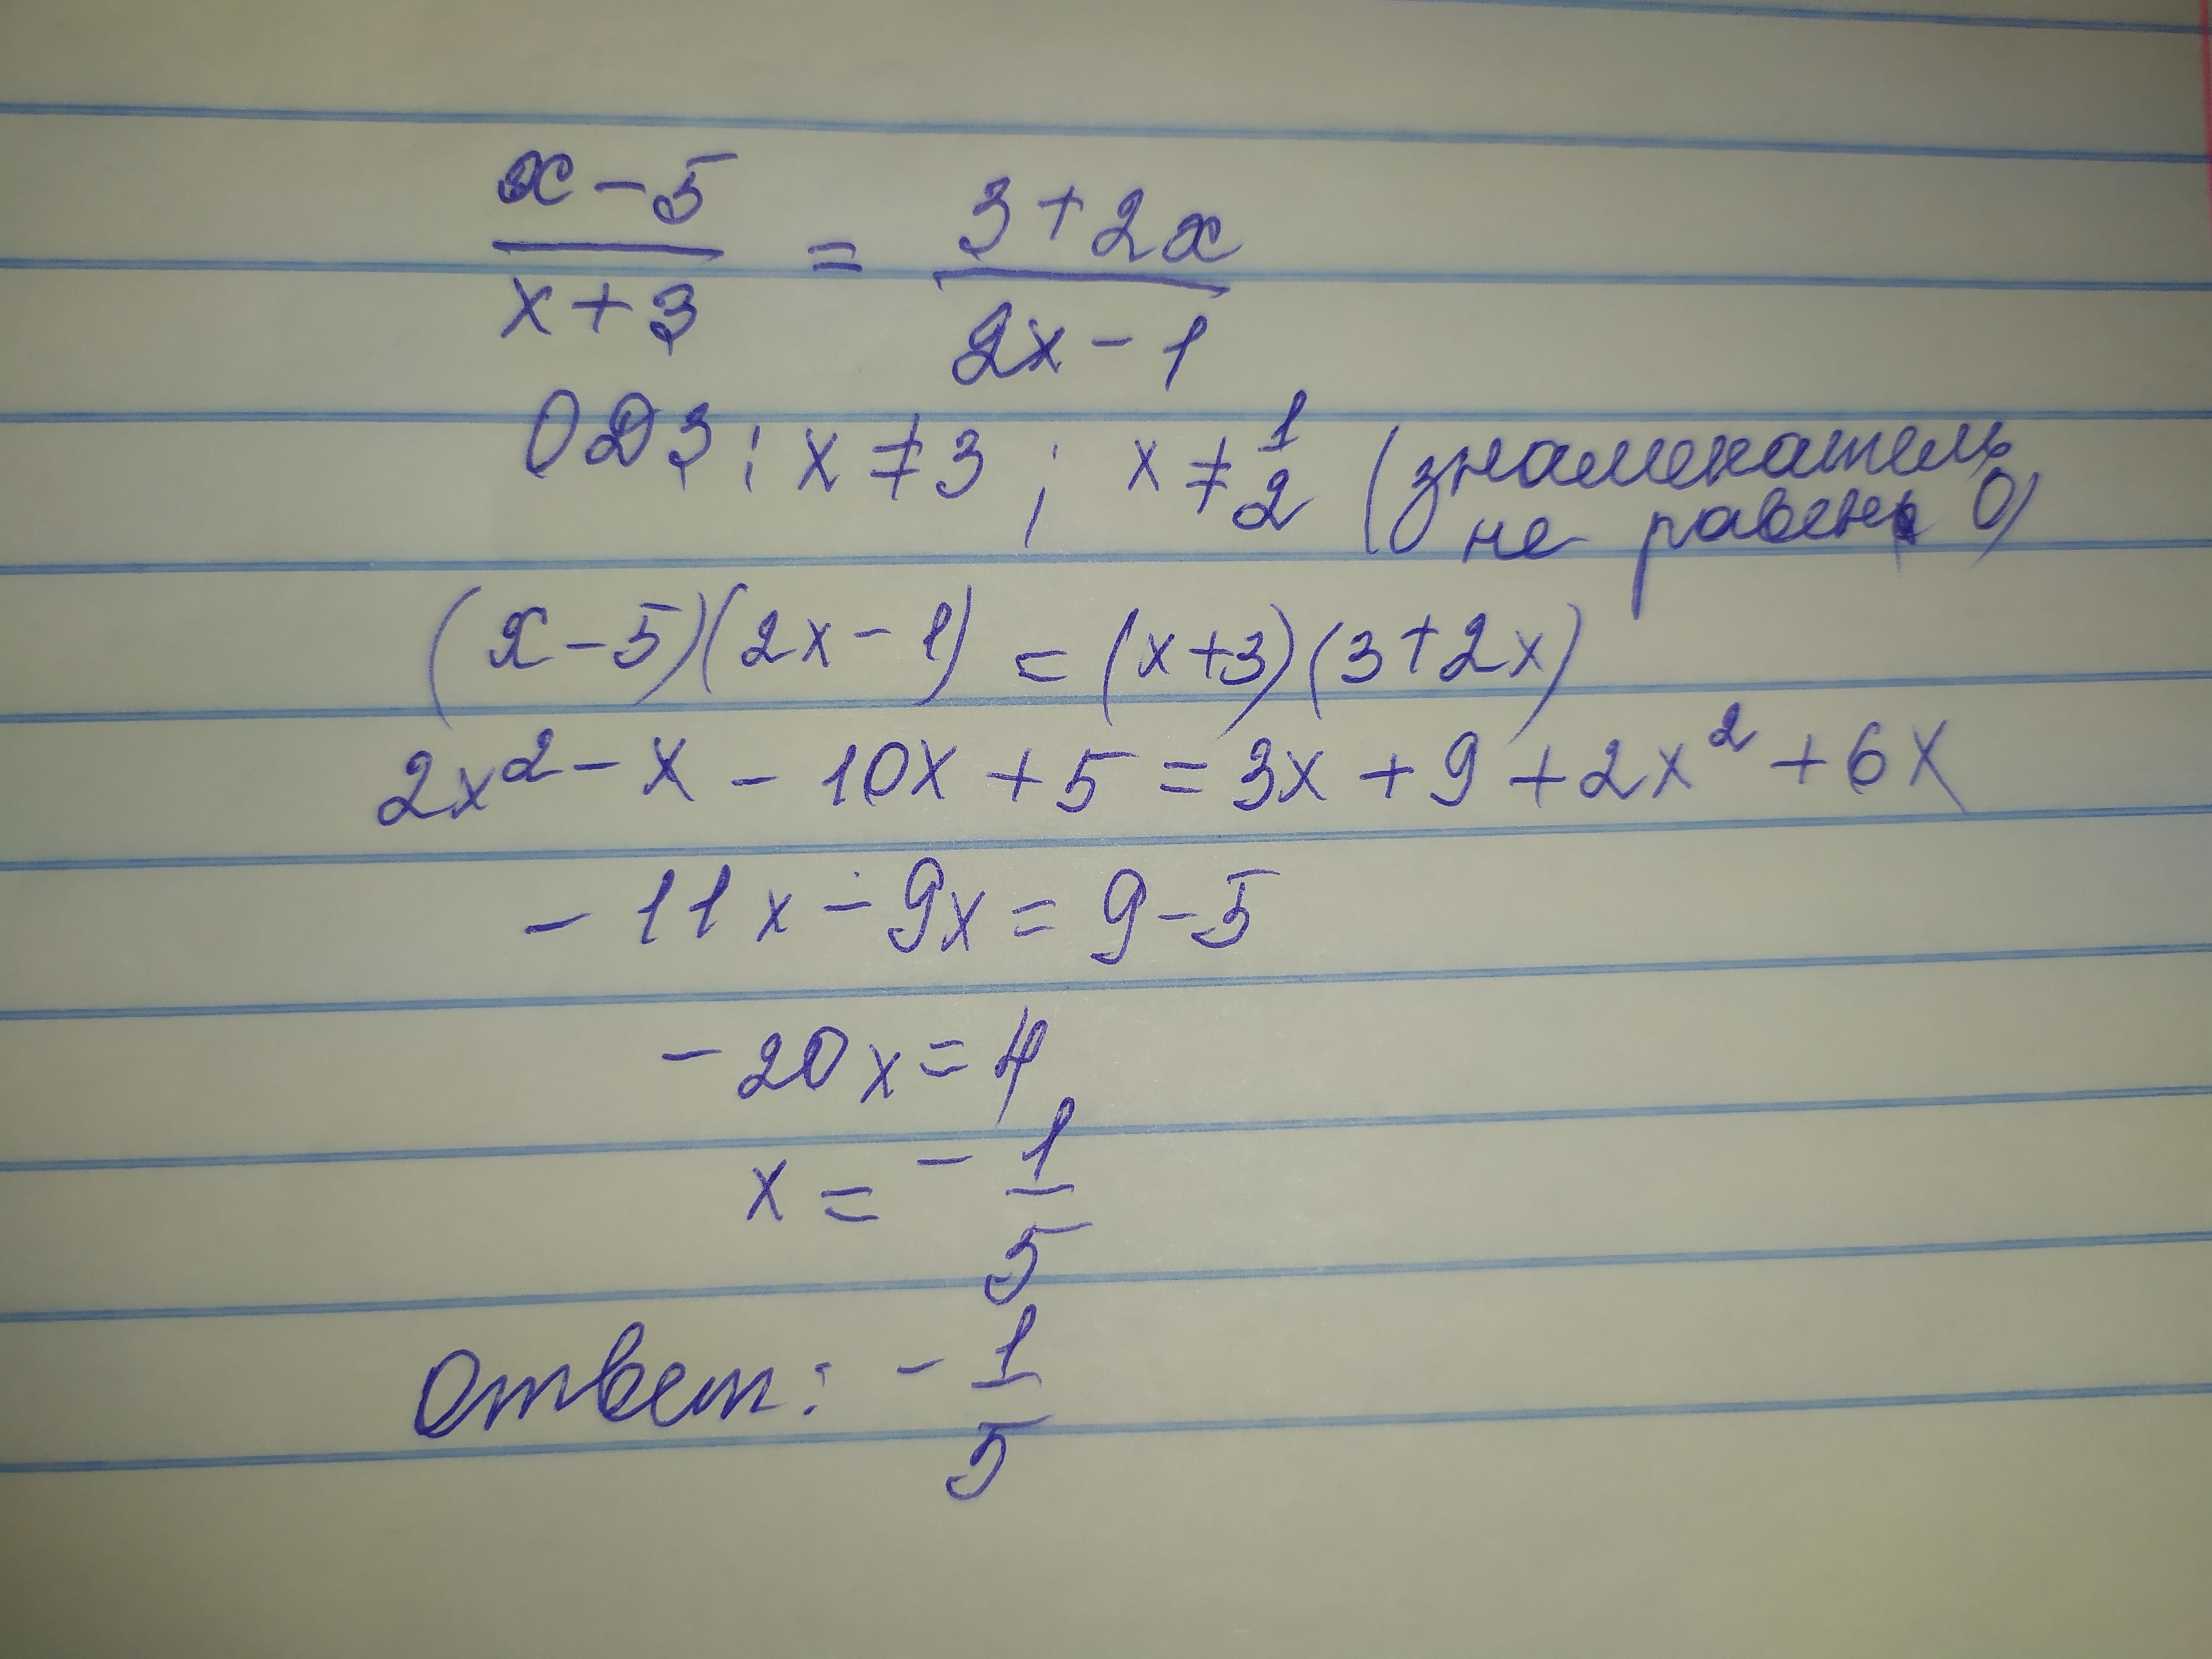 x-5/x+3 = 3+2x/2x-1
ОДЗ: x≠3; x≠1/2 (знаменатель
не равен 0)
(x-5)(2x-1)=(x+3)(3+2x)
2x²-x-10x+5=3x+9+2x²+6x
-11x-9x=9-5
-20x=4
x=-1/5
Ответ: -1/5